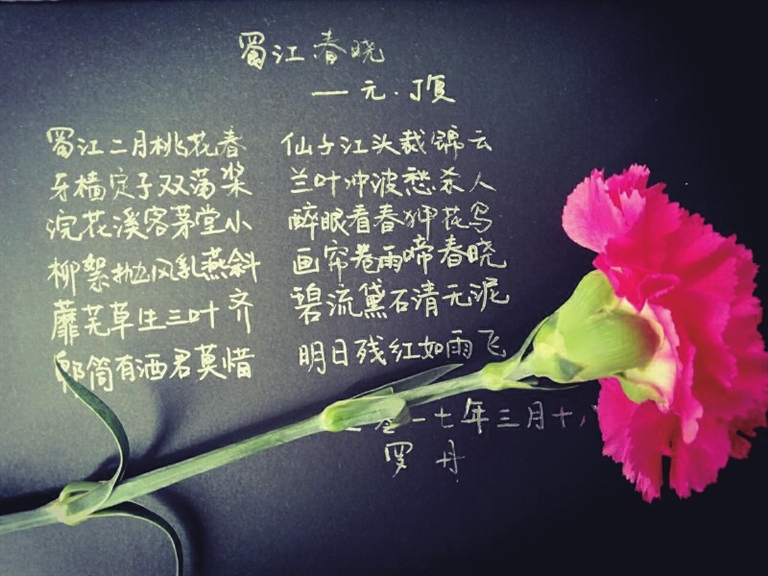 蜀江春晓
—元·顶
蜀江二月桃花春 仙子江头裁锦云
牙樯定子双荡桨 兰叶冲波愁杀人
浣花溪客茅堂小 醉眼看春狎花鸟
柳絮抛风乳燕斜 画帘卷雨啼春晓
蘼芜草生三叶齐 碧流黛石清无泥
郫筒有酒君莫惜 明日残红如雨飞
一七年三月十
罗丹